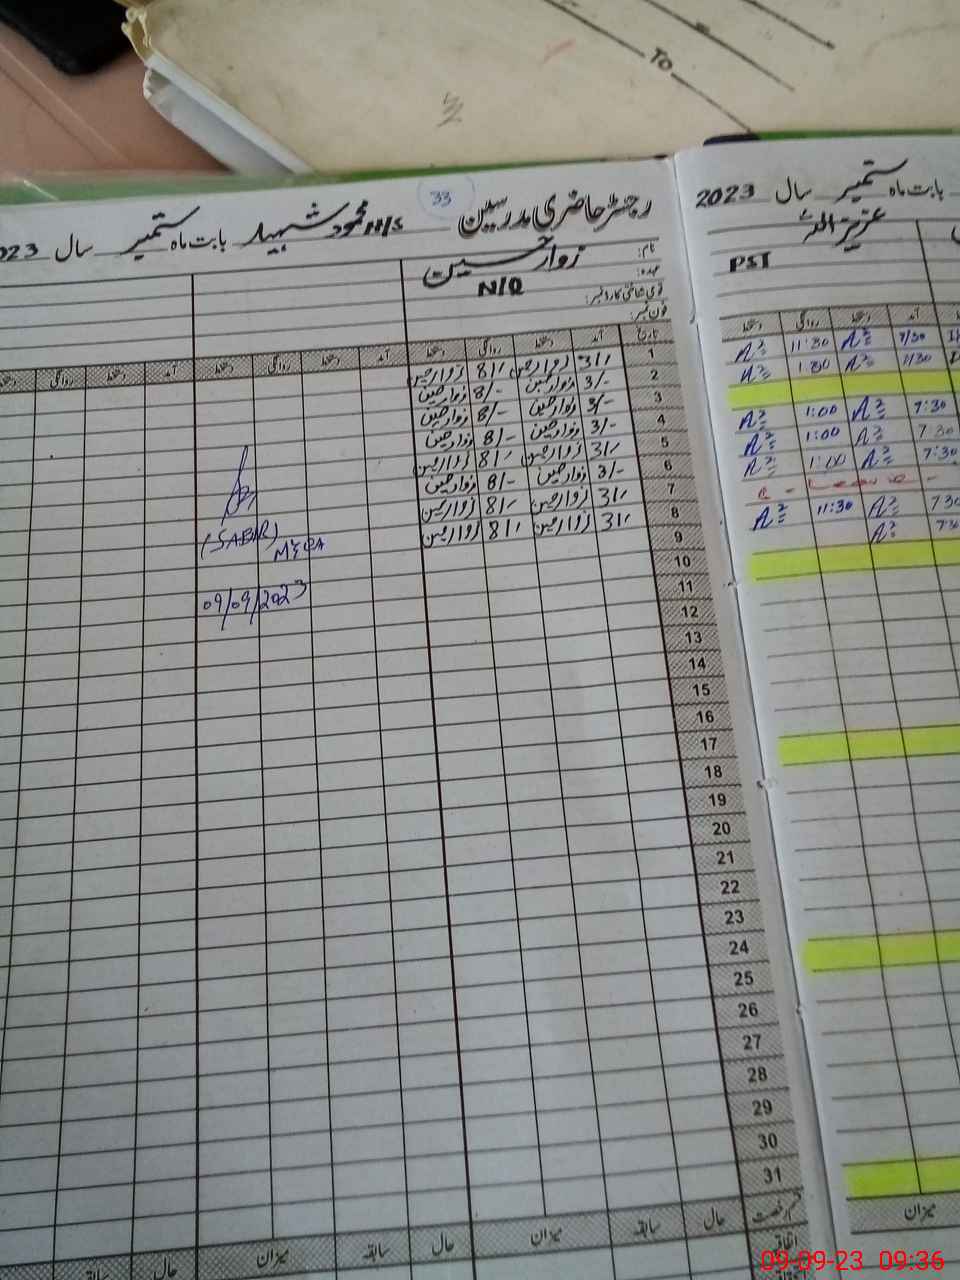 To
33
رجسٹر حاضری مدرسین H/S محمود شہید بابت ماہ ستمبر سال 2023
نام: زوار حسین
عہدہ: N/Q
قومی شناختی کارڈ نمبر:
فون نمبر:
تاریخ آمد دستخط روانگی دستخط آمد دستخط روانگی دستخط آمد دستخط روانگی دستخط
1 3/- زوار حسین 8/- زوار حسین
2 3/- زوار حسین 8/- زوار حسین
3 3/- زوار حسین 8/- زوار حسین
4 3/- زوار حسین 8/- زوار حسین
5 3/- زوار حسین 8/- زوار حسین
6 3/- زوار حسین 8/- زوار حسین
7 3/- زوار حسین 8/- زوار حسین
8 3/- زوار حسین 8/- زوار حسین
9
10
11
12
13
14
15
16
17
18
19
20
21
22
23
24
25
26
27
28
29
30
31
(SABIR)
09/09/2023
قسم رخصت حال سابقہ میزان حال سابقہ میزان حال سابقہ
اتفاقی
بابت ماہ ستمبر سال 2023
عزیز اللہ
PST
آمد دستخط روانگی دستخط
7/30 11:30
7/30 1:00
7:30 1:00
7:30 1:00
7:30 1:00
- Leave -
7:30 11:30
میزان
09-09-23 09:36